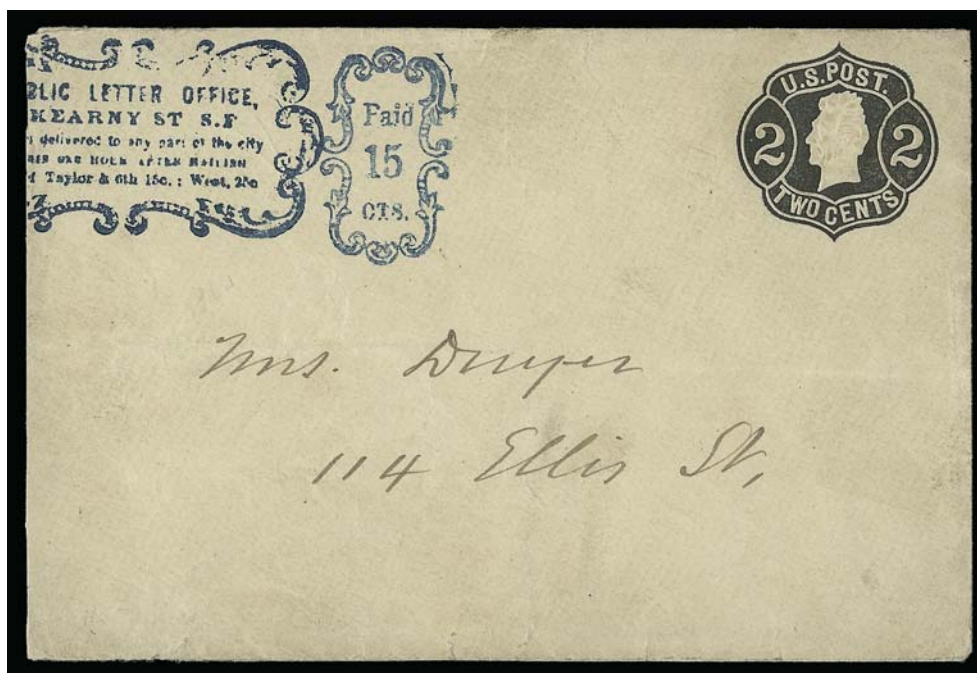 BLIC LETTER OFFICE,
KEARNY ST S.F
delivered to any part of the city
ONE HOUR AFTER MAILING
Taylor & 6th 15c.; West, 25c
Paid
15
CTS.
U.S. POST.
2 2
TWO CENTS
Mrs. Dwyer
114 Ellis St,